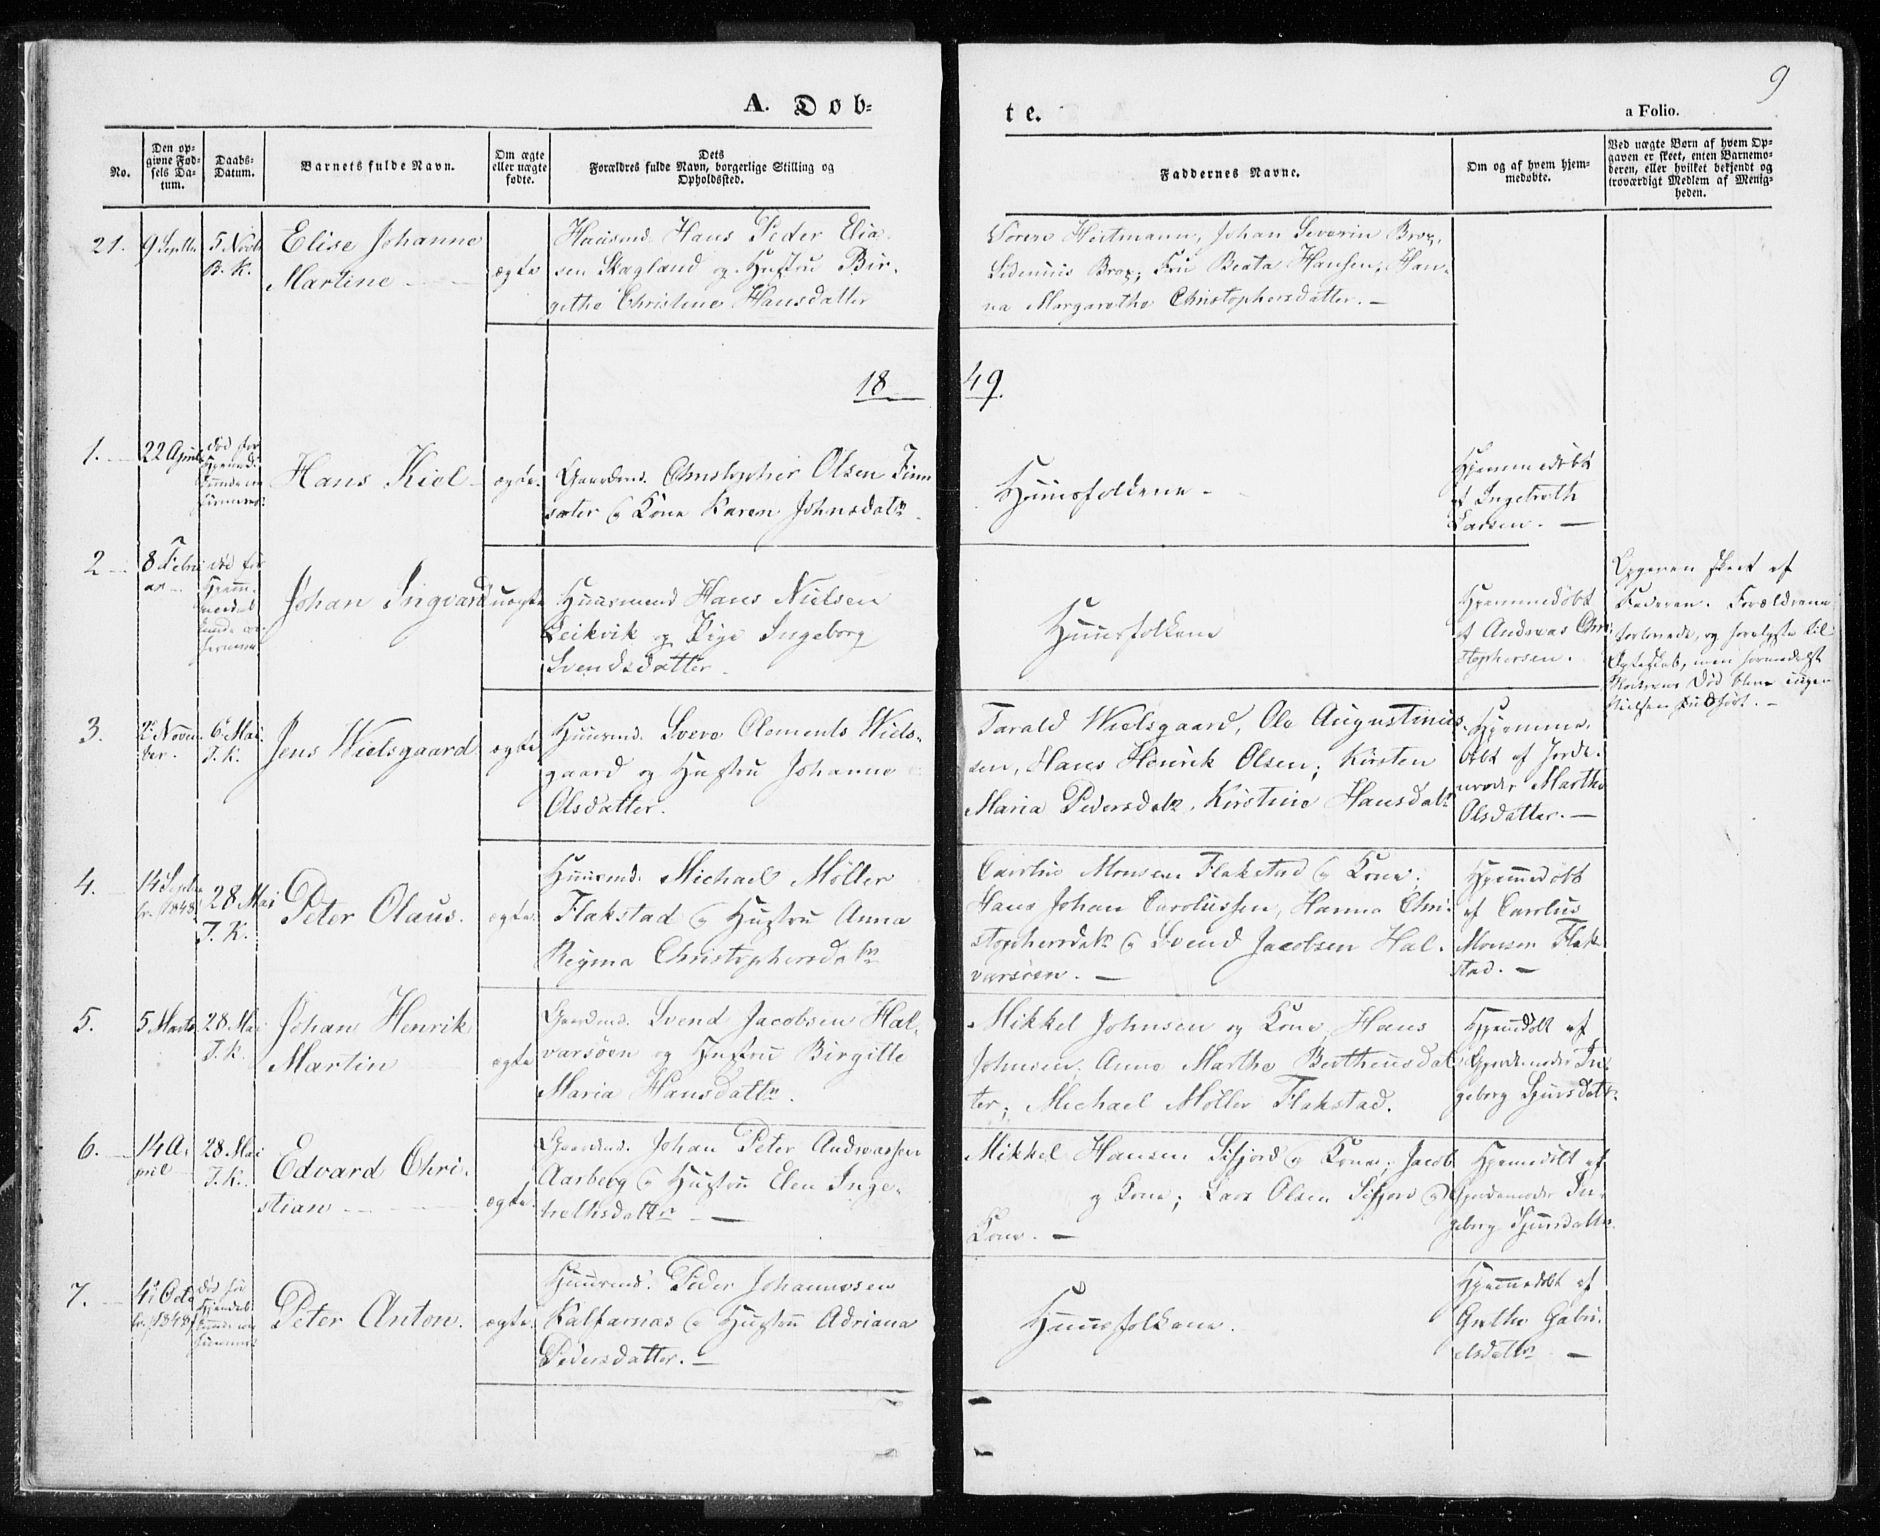 9
A. Døb-
te.
a Folio.
No.
Den op-
givne Fød-
sels Da-
tum.
Daabs-
Datum.
Barnets fulde Navn.
Om ægte
eller uægte
fødte.
Dets
Forældres fulde Navn, borgerlige Stilling og
Opholdssted.
Faddernes Navne.
Om og af hvem hjem-
medøbte.
Ved uægte Børn af hvem Op-
gaven er skeet, enten Barnemo-
deren, eller hvilket bekjendt og
troværdigt Medlem af Menig-
heden.
21.
9 Septbr
5 Novbr
B. K.
Elise Johanne
Martine
ægte
Huusmd. Hans Peder Elia-
sen Skagland og Hustru Bir-
githe Christine Hansdatter
Søren Heitmann, Johan Severin Brox,
Sidenius Brox; Fru Beata Hansen, Han-
na Margarethe Christophersdatter. —
18
49.
1.
22 April
død før
Hans Kiel
ægte.
Gaardmd. Christopher Olsen Finn
sæter og Kone Karen Johnsdatr.
Huusfolkene.
Hjemmedøbt
af Ingebreth
Larsen. —
2
8 Febru
ar
død før
Hjem-
Johan Ingvard
uægte
Huusmand Hans Nielsen
Leikvik og Pige Ingeborg
Svendsdatter.
Huusfolkene
Hjemmedøbt
af Andreas Chri
stophersen.
Opgaven skeet af
Faderen. Forældrene
forlovede, og forlyste til
Ægteskab, men formedelst
Moderens Død blev ingen
Vielsen fuldført. —
3.
2 Novem
ber.
6 Mai
T. K.
Jens Wielsgaard
ægte
Huusmd. Svero Clements Wiels-
gaard og Hustru Johanne
Olsdatter.
Tarald Wielsgaard, Ole Augustinius-
sen, Hans Henrik Olsen; Kirsten
Maria Pedersdatr, Kirstine Hansdatr
Hjemme-
døbt af Jorde-
moder Marthe
Olsdatter. —
4.
14 Septem
br. 1848
28 Mai
T. K.
Peter Olaus.
ægte.
Huusmd. Michael Møller
Flakstad og Hustru Anna
Regina Christophersdatr
Carolius Monsen Flakstad og Kone;
Hans Johan Carolussen, Hanna Chri-
stophersdatr og Svend Jacobsen Hal-
varsøen. —
Hjemmedøbt
af Carolius
Monsen Flak
stad. —
5.
5 Marts
28 Mai
T. K.
Johan Henrik
Martin
ægte
Gaardmd. Svend Jacobsen Hal-
varsøen og Hustru Birgitte
Maria Hansdattr.
Mikkel Johnsen og Kone, Hans
Johnsen; Anne Marthe Bertheusdat
ter; Michael Møller Flakstad.
Hjemmedøbt af
Gjordemoder In-
geborg Sjursdatr.
6.
14 A-
pril
28 Mai
T. K.
Edvard Chri-
stian
ægte.
Gaardmd. Johan Peter Andreassen
Aarberg og Hustru Elen Inge-
brethsdattr —
Mikkel Hansen Sifjord og Kone; Jacob
og Kone; Lars Olsen Sifjord og
Kone. —
Hjemmedøbt af
Gjordemoder In-
geborg Sjursdatter.
7.
4 Octo
br. 1848
død før
Hjemdøb
Peter Anton.
ægte.
Huusmd. Peder Johannesen
Kalfarnæs og Hustru Adriana
Pedersdatter. —
Huusfolkene.
Hjemmedøbt af
Grethe Gabri-
elsdattr —